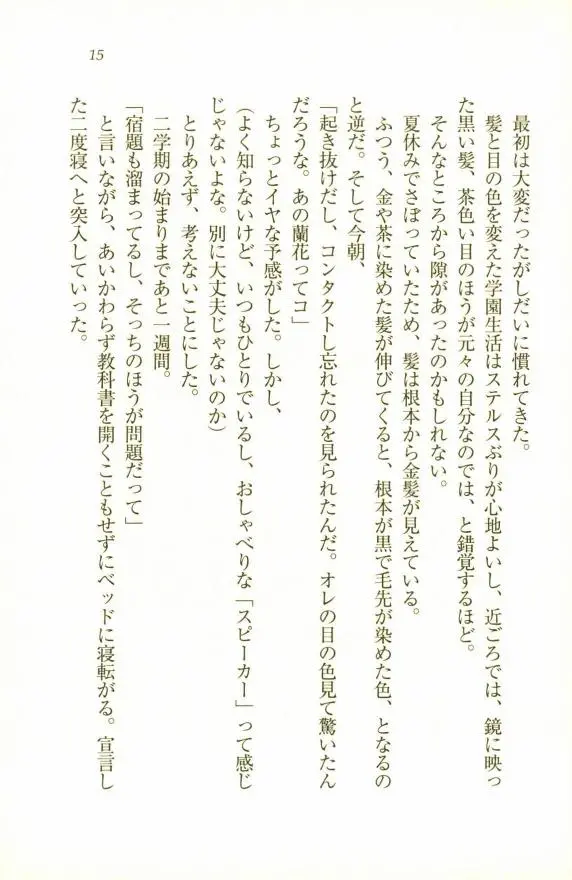 15
最初は大変だったがしだいに慣れてきた。
髪と目の色を変えた学園生活はステルスぶりが心地よいし、近ごろでは、鏡に映っ
た黒い髪、茶色い目のほうが元々の自分なのでは、と錯覚するほど。
そんなところから隙があったのかもしれない。
夏休みでさぼっていたため、髪は根本から金髪が見えている。
ふつう、金や茶に染めた髪が伸びてくると、根本が黒で毛先が染めた色、となるの
と逆だ。そして今朝、
「起き抜けだし、コンタクトし忘れたのを見られたんだ。オレの目の色見て驚いたん
だろうな。あの蘭花ってコ」
ちょっとイヤな予感がした。しかし、
（よく知らないけど、いつもひとりでいるし、おしゃべりな「スピーカー」って感じ
じゃないよな。別に大丈夫じゃないのか）
とりあえず、考えないことにした。
二学期の始まりまであと一週間。
「宿題も溜まってるし、そっちのほうが問題だって」
と言いながら、あいかわらず教科書を開くこともせずにベッドに寝転がる。宣言し
た二度寝へと突入していった。